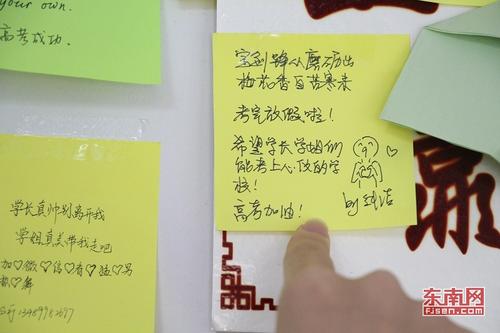 your own.
高考成功.
宝剑锋从磨砺出
梅花香自苦寒来
考完放假啦！
希望学长学姐们
能考上心仪的学
校！
高考加油！
by 纯洁
学长真帅别离开我
学姐真美带我走吧
加♡微♡信♡有♡猛♡男
东南网
FJSEN.COM